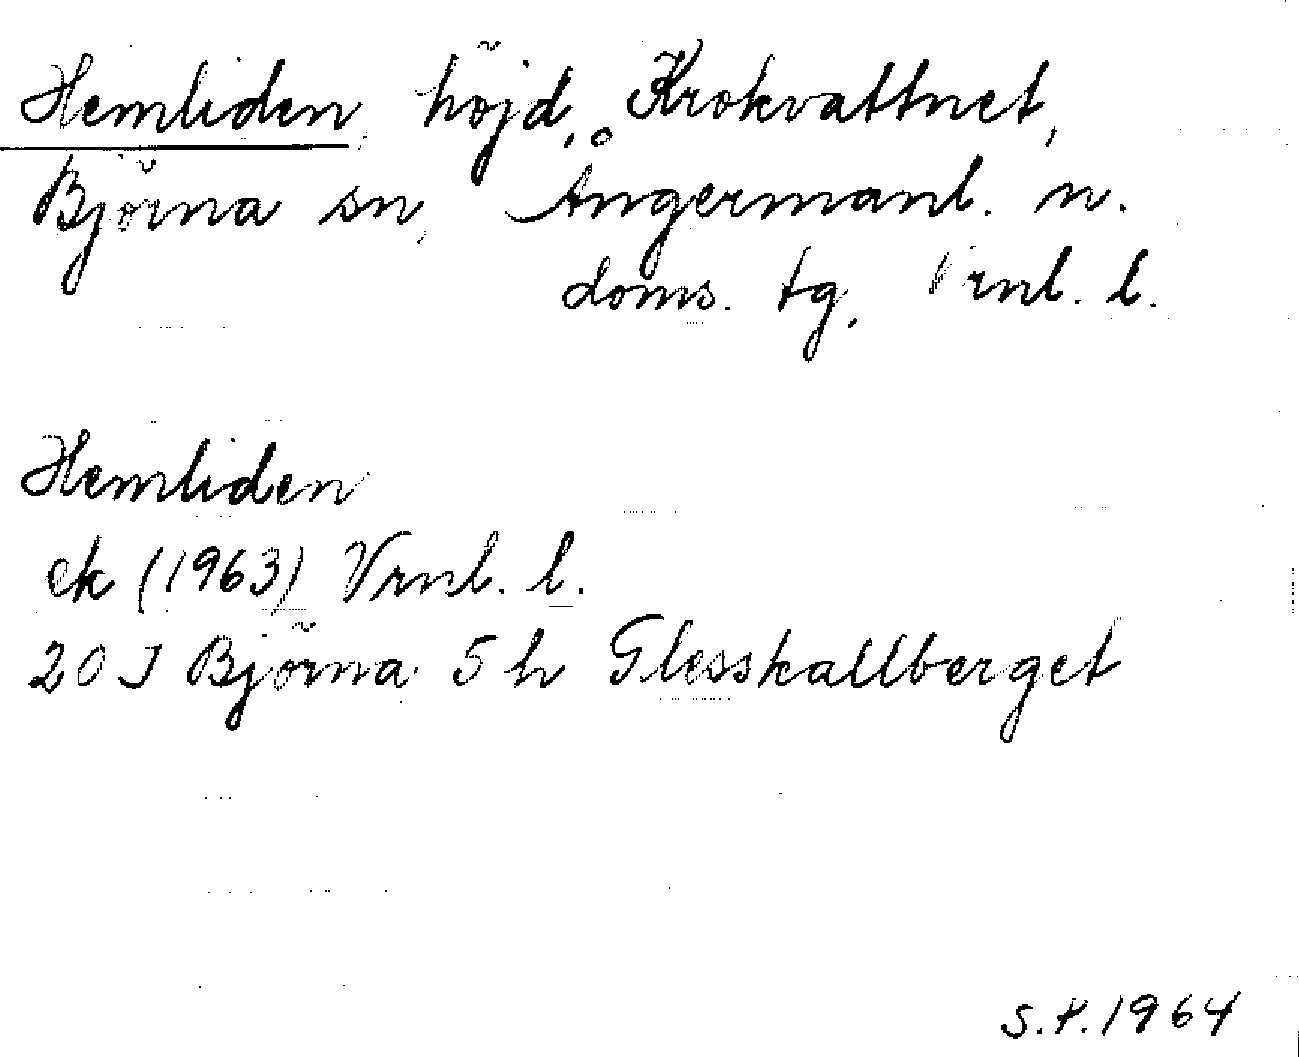 Hemliden, höjd, Krokvattnet,
Björna sn, Ångermanl. n.
doms. tg, Vrnl. l.
Hemliden
ek (1963) Vrnl. l.
20 J Björna 5 h Glesskallberget
S.P. 1964